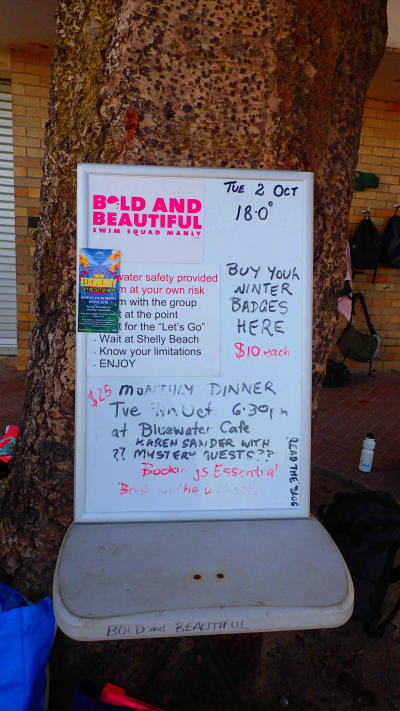 BOLD AND
BEAUTIFUL
SWIM SQUAD MANLY
TUE 2 OCT
18.0°
water safety provided
at your own risk
with the group
at the point
for the "Let's Go"
- Wait at Shelly Beach
- Know your limitations
- ENJOY
BUY YOUR
WINTER
BADGES
HERE
$10 each
$25 MONTHLY DINNER
Tue Oct 6:30pm
at Bluewater Cafe
KAREN SANDER WITH
?? MYSTERY GUESTS??
Bookings Essential
Book on the
READ THE BLOG
BOLD and BEAUTIFUL